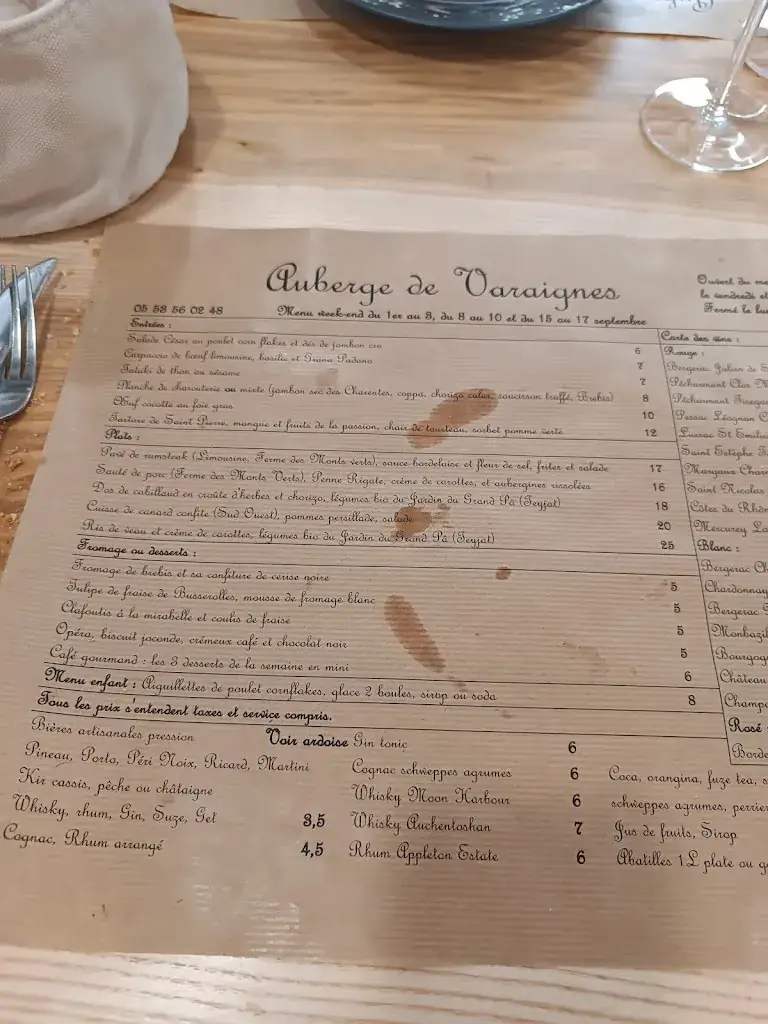 Auberge de Varaignes
05 53 56 02 48
Menu week-end du 1er au 3, du 8 au 10 et du 15 au 17 septembre
Ouvert du
le vendredi et
Fermé le
Entrées :
Salade César au poulet corn flakes et dés de jambon cru 6
Carpaccio de bœuf limousine, basilic et Grana Padano 7
Tataki de thon au sésame 7
Planche de charcuterie ou mixte (jambon sec des Charentes, coppa, chorizo cular, saucisson truffé, Brebis) 8
Œuf cocotte au foie gras 10
Tartare de Saint Pierre, mangue et fruits de la passion, chair de tourteau, sorbet pomme verte 12
Plats :
Pavé de rumsteak (Limousine, Ferme des Monts verts), sauce bordelaise et fleur de sel, frites et salade 17
Sauté de porc (Ferme des Monts Verts), Penne Rigate, crème de carottes, et aubergines rissolées 16
Dos de cabillaud en croûte d'herbes et chorizo, légumes bio du Jardin du Grand Pâ (Teyjat) 18
Cuisse de canard confite (Sud Ouest), pommes persillade, salade 20
Ris de veau et crème de carottes, légumes bio du Jardin du Grand Pâ (Teyjat) 25
Fromage ou desserts :
Fromage de brebis et sa confiture de cerise noire 5
Tulipe de fraise de Busserolles, mousse de fromage blanc 5
Clafoutis à la mirabelle et coulis de fraise 5
Opéra, biscuit joconde, crémeux café et chocolat noir 5
Café gourmand : les 3 desserts de la semaine en mini 6
Menu enfant : Aiguillettes de poulet cornflakes, glace 2 boules, sirop ou soda 8
Tous les prix s'entendent taxes et service compris.
Carte des vins :
Rouge :
Bergerac Julien de
Pécharmant Clos
Pécharmant
Pessac Léognan
Lussac St Emilion
Saint Estèphe
Margaux
Saint Nicolas
Côtes du Rhône
Mercurey
Blanc :
Bergerac
Chardonnay
Bergerac
Monbazillac
Bourgogne
Château
Champ
Rosé
Borde
Bières artisanales pression Voir ardoise
Pineau, Porto, Péri Noix, Ricard, Martini
Kir cassis, pêche ou châtaigne
Whisky, rhum, Gin, Suze, Get 3,5
Cognac, Rhum arrangé 4,5
Gin tonic 6
Cognac schweppes agrumes 6
Whisky Moon Harbour 6
Whisky Auchentoshan 7
Rhum Appleton Estate 6
Coca, orangina, fuze tea,
schweppes agrumes, perrier
Jus de fruits, Sirop
Abatilles 1L plate ou